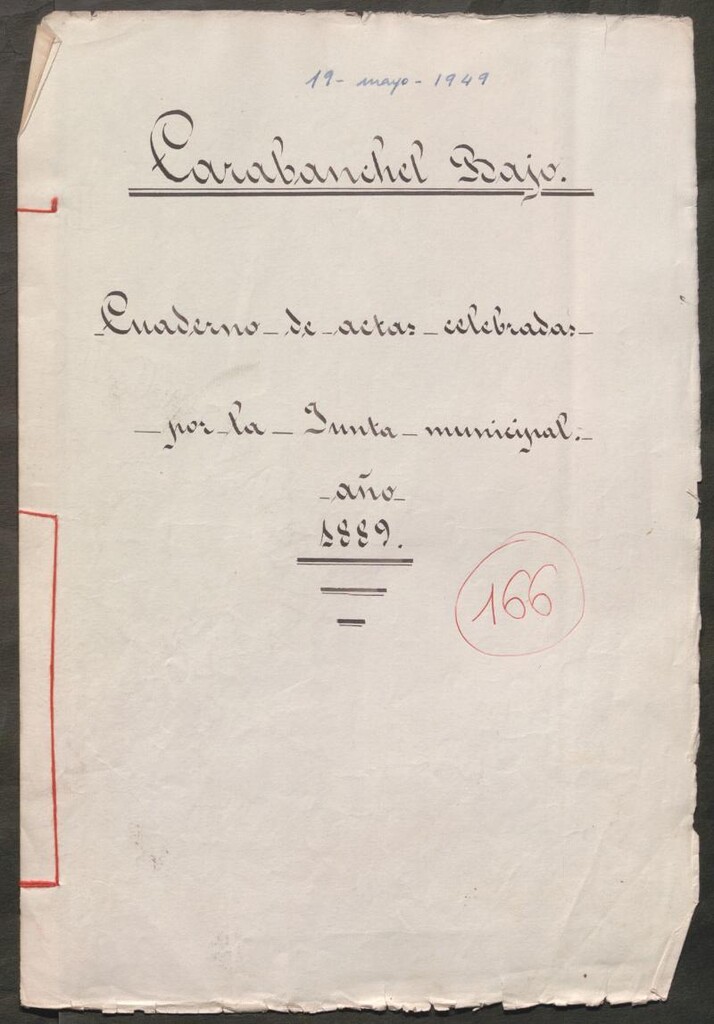 19 - mayo - 1949
Carabanchel Bajo.
Cuaderno - de - actas - celebradas -
- por - la - Junta - municipal. -
- año -
1889.
166